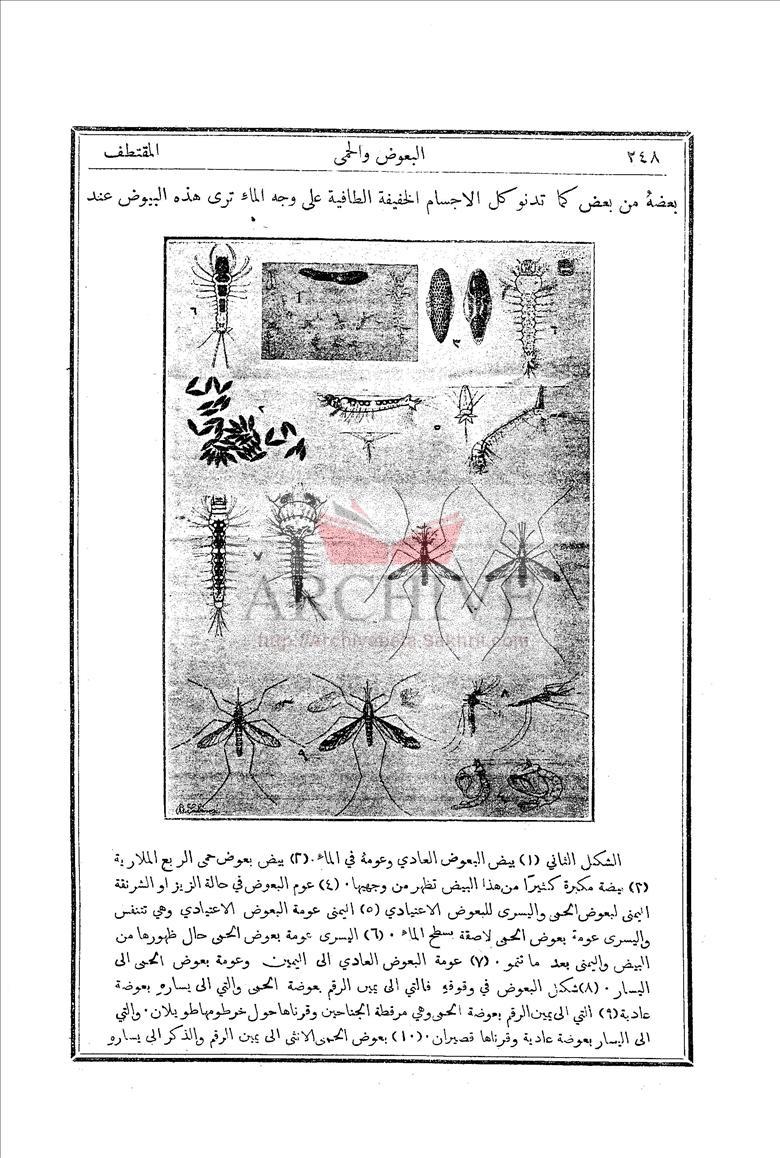 ٢٤٨
البعوض والحمى
المقتطف
بعضهُ من بعض كما تدنو كل الاجسام الخفيفة الطافية على وجه الماء ترى هذه البيوض عند
٦
١
٣
٦
٢
٥
٧
ARCHIVE
http://Archivebeta.Sakhrit.com
٨
٩
الشكل الثاني (١) بيض البعوض العادي وعومهُ في الماء. (٢) بيض بعوض حمى الربع الملارية
(٣) بيضة مكبرة كثيرًا من هذا البيض تظهر من وجهيها. (٤) عوم البعوض في حالة الزيز او الشرنقة
اليمنى لبعوض الحمى واليسرى للبعوض الاعتيادي (٥) اليمنى عومة البعوض الاعتيادي وهي تتنفس
واليسرى عومة بعوض الحمى لاصقة بسطح الماء. (٦) اليسرى عومة بعوض الحمى حال ظهورها من
البيض واليمنى بعد ما تنمو. (٧) عومة البعوض العادي الى اليمين وعومة بعوض الحمى الى
اليسار. (٨) شكل البعوض في وقوفهِ فالتي الى يمين الرقم بعوضة الحمى والتي الى يسارهِ بعوضة
عادية (٩) التي الى يمين الرقم بعوضة الحمى وهي مرقطة الجناحين وقرناها حول خرطومها طويلان. والتي
الى اليسار بعوضة عادية وقرناها قصيران. (١٠) بعوض الحمى الانثى الى يمين الرقم والذكر الى يسارهِ